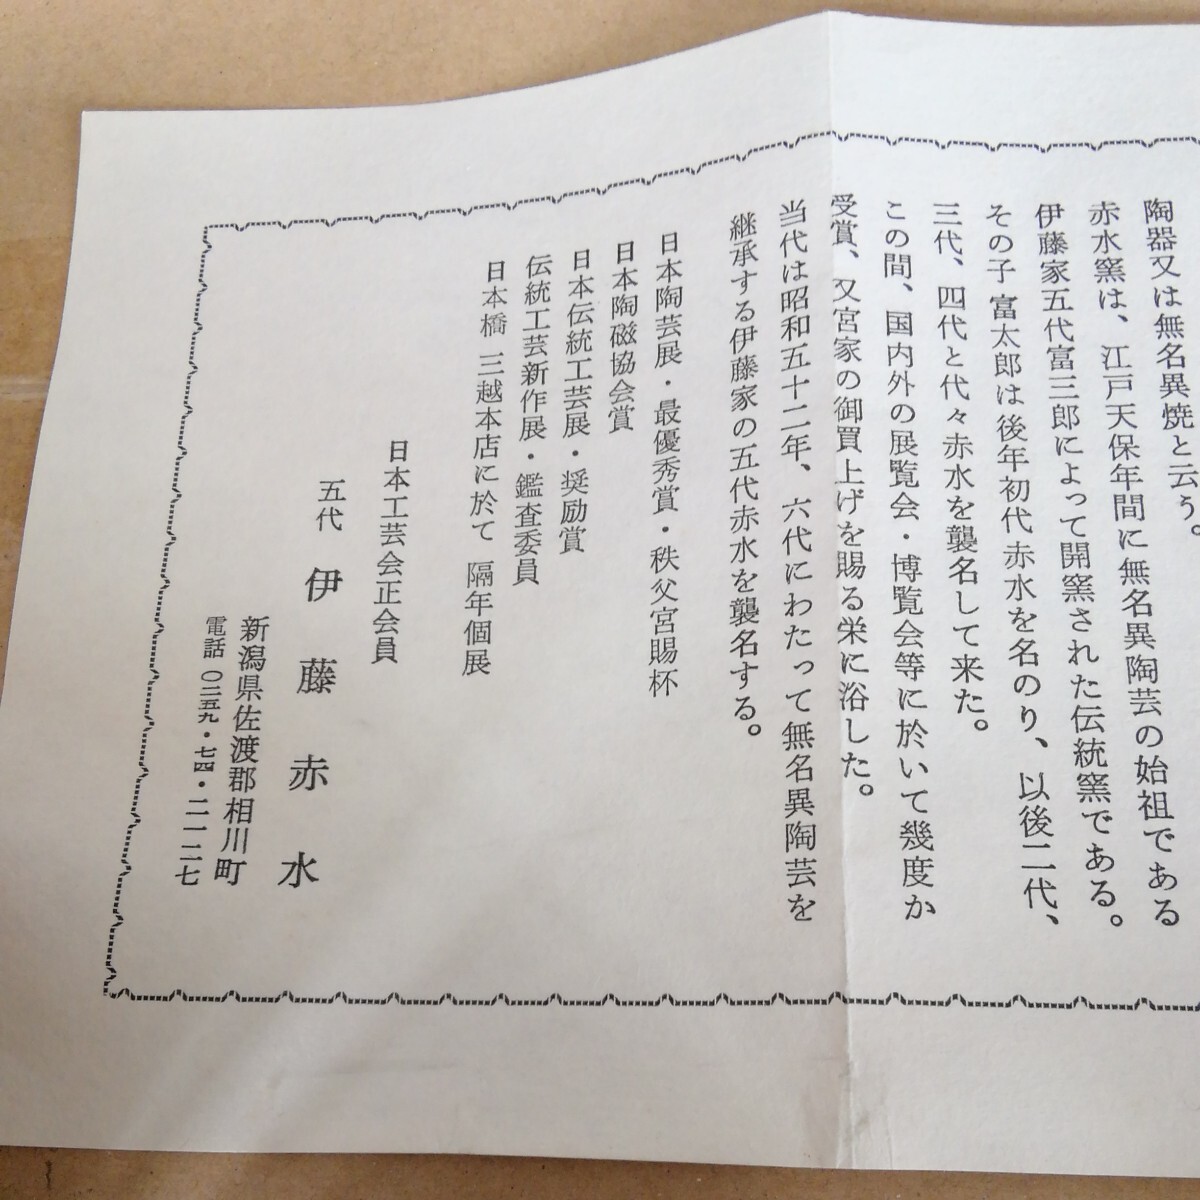 陶器又は無名異焼と云う。
赤水窯は、江戸天保年間に無名異陶芸の始祖である
伊藤家五代富三郎によって開窯された伝統窯である。
その子 富太郎は後年初代赤水を名のり、以後二代、
三代、四代と代々赤水を襲名して来た。
この間、国内外の展覧会・博覧会等に於いて幾度か
受賞、又宮家の御買上げを賜る栄に浴した。
当代は昭和五十二年、六代にわたって無名異陶芸を
継承する伊藤家の五代赤水を襲名する。
日本陶芸展・最優秀賞・秩父宮賜杯
日本陶磁協会賞
日本伝統工芸展・奨励賞
伝統工芸新作展・鑑査委員
日本橋 三越本店に於て 隔年個展
日本工芸会正会員
五代 伊藤赤水
新潟県佐渡郡相川町
電話 〇二五九・七四・二一二七